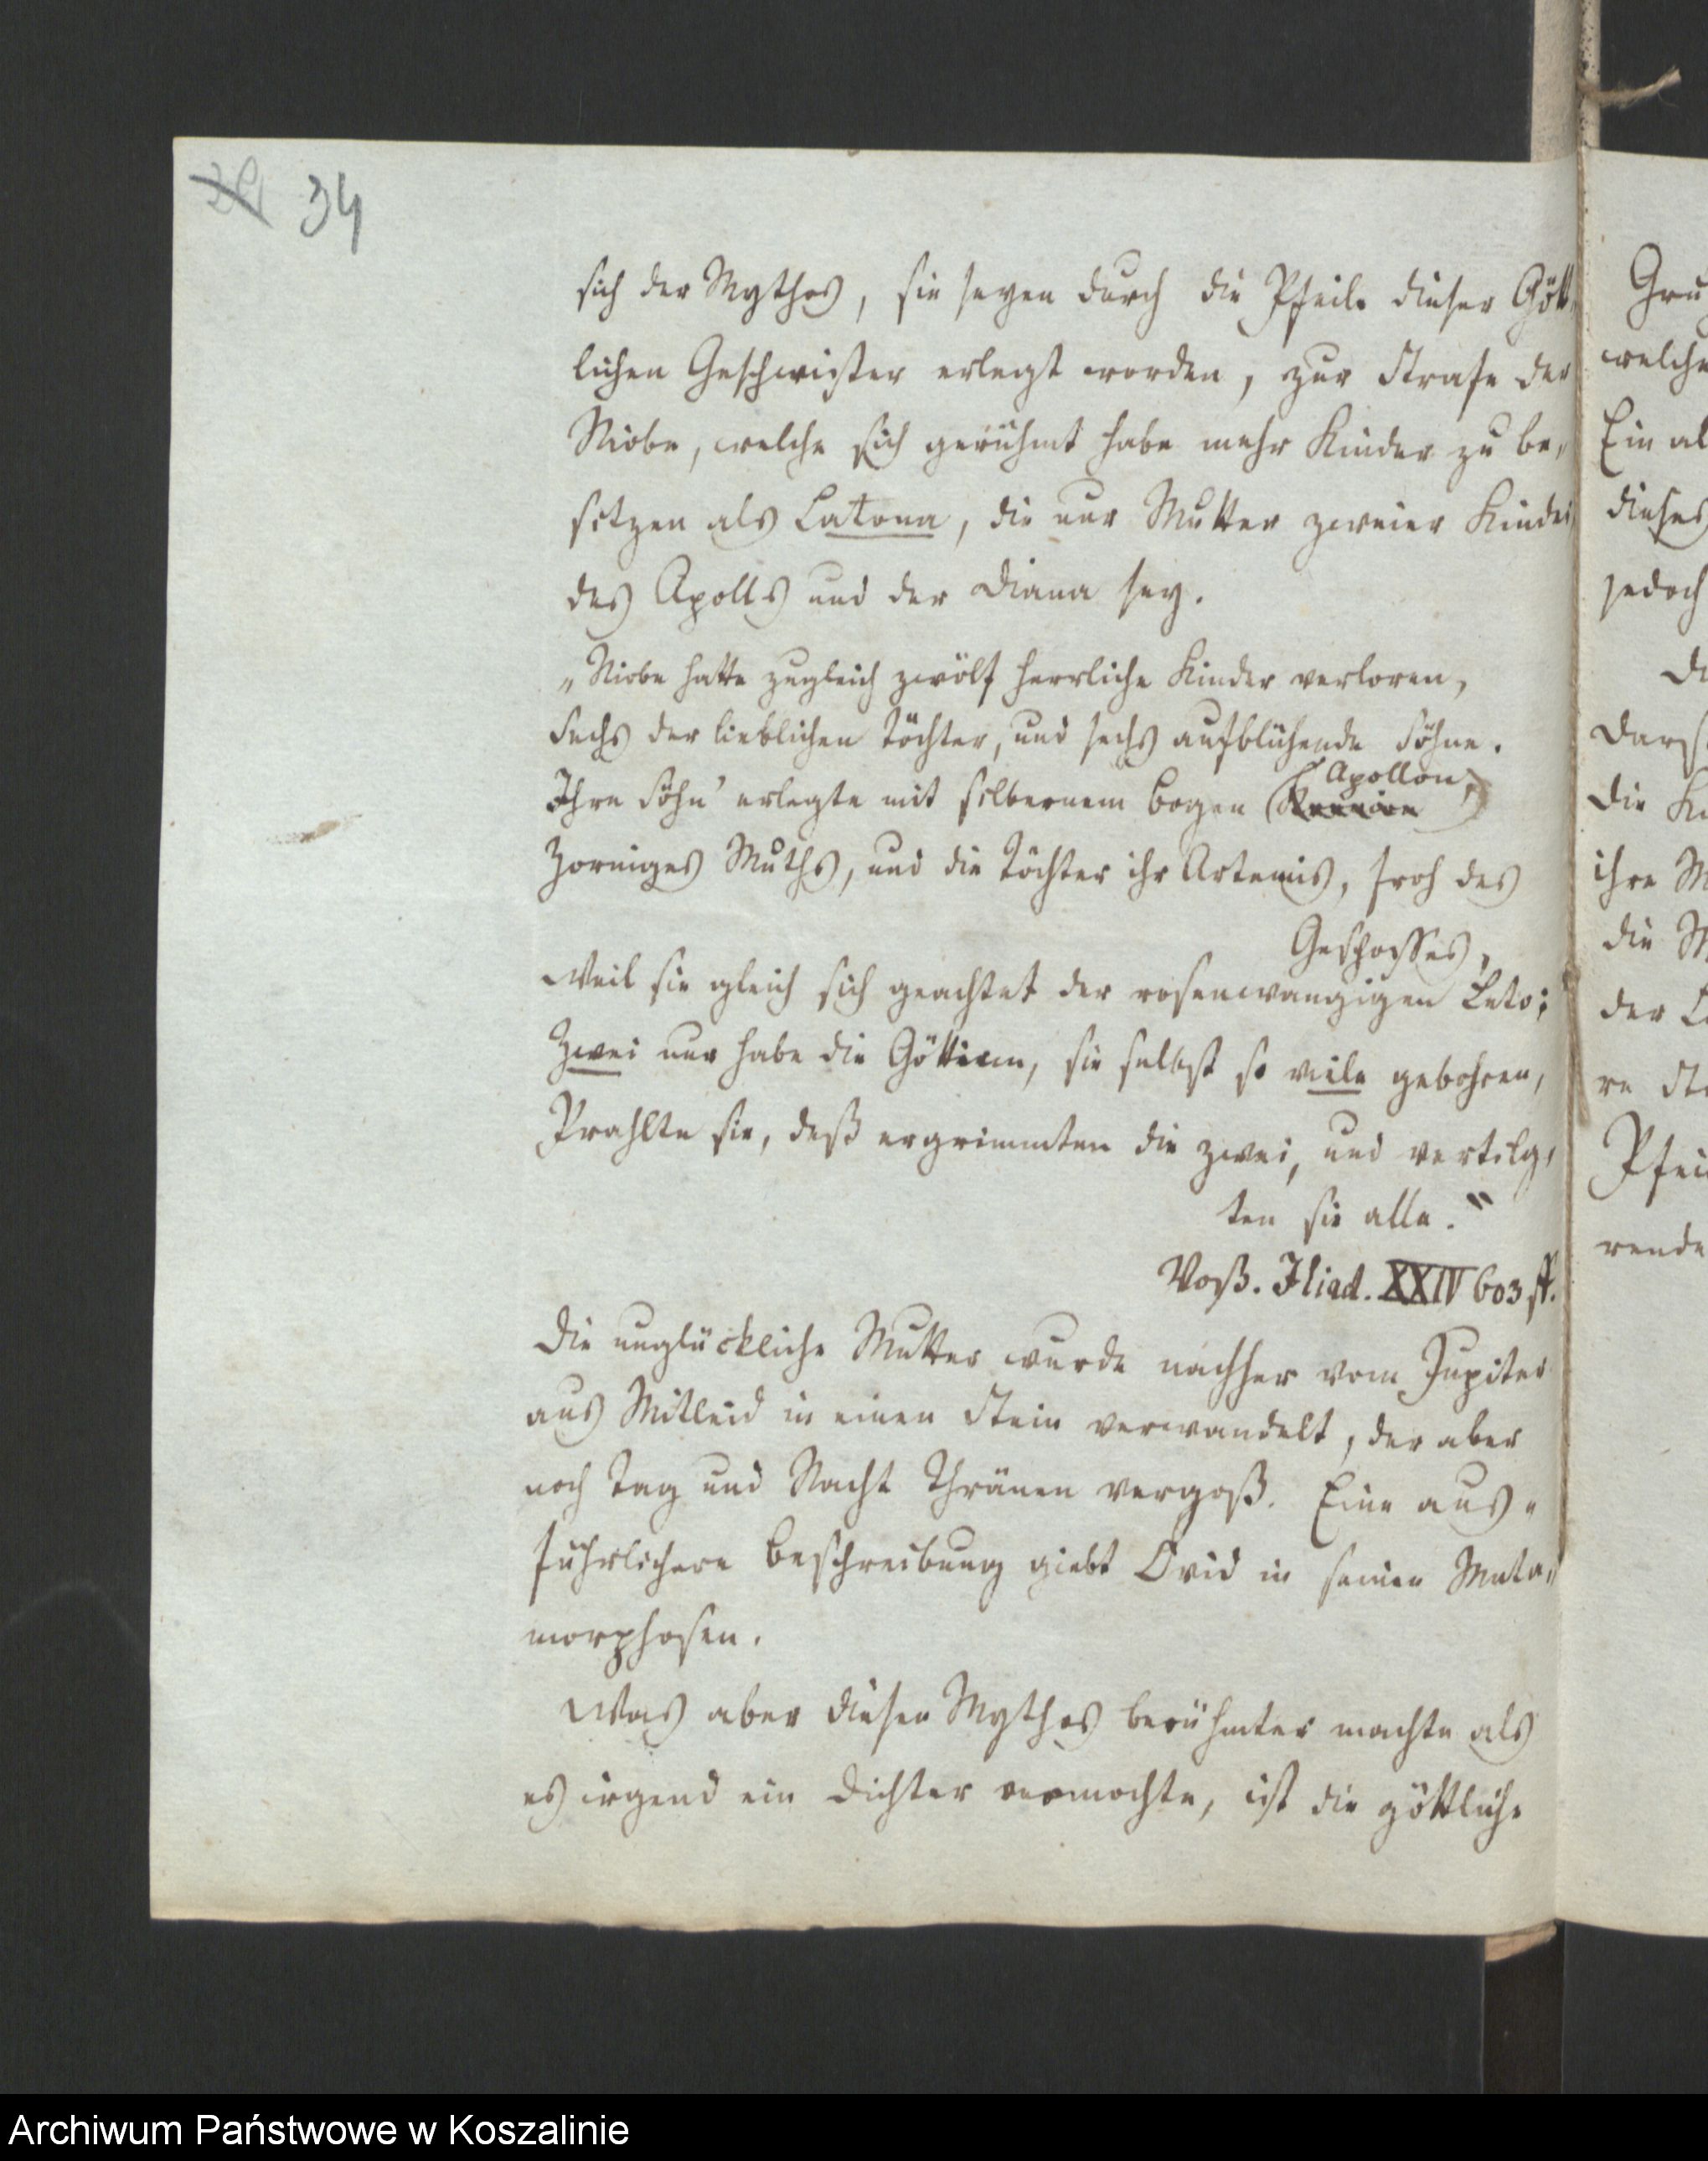 34
sich der Mythos, sie seyen durch die Pfeile dieser Gött„
lichen Geschwister erlegt worden, zur Strafe der
Niobe, welche sich gerühmt habe mehr Kinder zu be„
sitzen als Latona, die nur Mutter zweier Kinder
des Apolls und der Diana sey.
„Niobe hatte zugleich zwölf herrliche Kinder verloren,
Sechs der lieblichen Töchter, und sechs aufblühende Söhne.
Apollon,
Ihre Söhn' erlegte mit silbernem Bogen
Zorniges Muths, und die Töchter ihr Artemis, froh des
Geschosses,
Weil sie gleich sich geachtet der rosenwangigen Leto;
Zwei nur habe die Göttinn, sie selbst so viele gebohren,
Prahlte sie, deß ergrimmten die zwei, und vertilg„
ten sie alle."
Voß. Iliad. XXIV 603 ff.
Die unglückliche Mutter wurde nachher vom Jupiter
aus Mitleid in einen Stein verwandelt, der aber
noch Tag und Nacht Thränen vergoß. Eine aus„
führlichere Beschreibung giebt Ovid in seinen Meta„
morphosen.
Was aber diesen Mythos berühmter machte als
es irgend ein Dichter vermochte, ist die göttliche
Gru
welche
Ein al
dieses
jedoch
Darst
die Ki
ihre M
die M
der L
re St
Pfei
rende
Archiwum Państwowe w Koszalinie